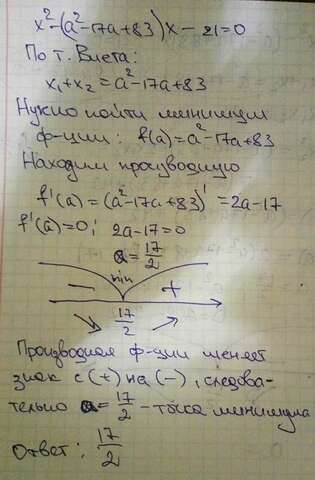 x² - (a² - 17a + 83)x - 21 = 0
По т. Виета:
x₁ + x₂ = a² - 17a + 83
Нужно найти минимум
ф-ции: f(a) = a² - 17a + 83
Находим производную
f'(a) = (a² - 17a + 83)' = 2a - 17
f'(a) = 0; 2a - 17 = 0
a = 17/2
min
- +
17/2
Производная ф-ции меняет
знак с (+) на (-), следова-
тельно a = 17/2 - точка минимума
Ответ: 17/2